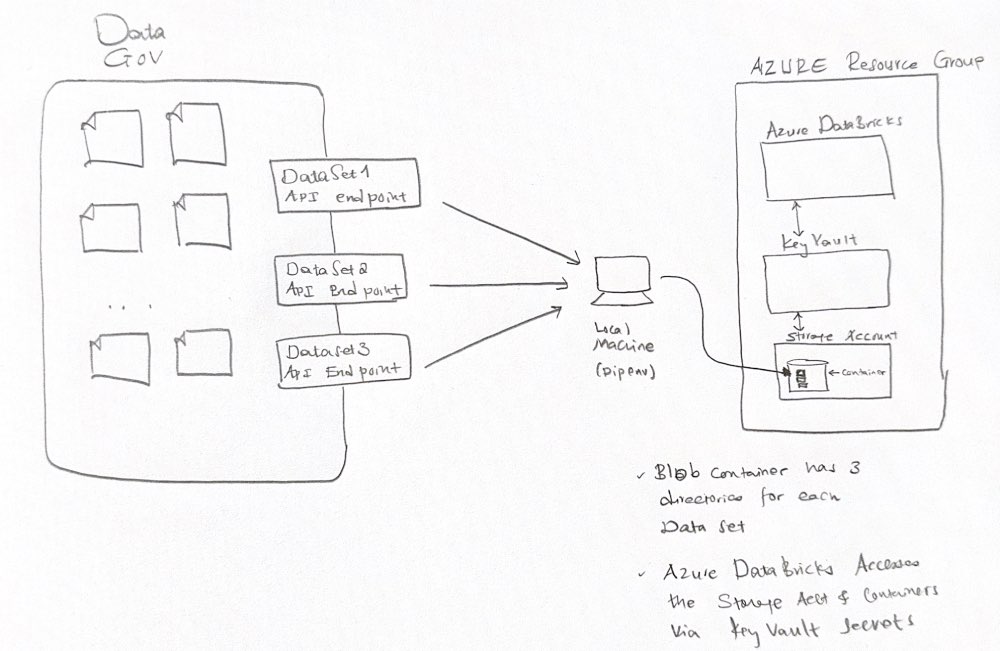 Data
Gov
DataSet1
API endpoint
DataSet2
API Endpoint
Dataset3
API Endpoint
Local
Machine
(pipenv)
AZURE Resource Group
Azure DataBricks
Key Vault
Storage Account
container
✓ Blob container has 3
directories for each
Data set
✓ Azure DataBricks Accesses
the Storage Acct & Containers
via Key Vault Secrets